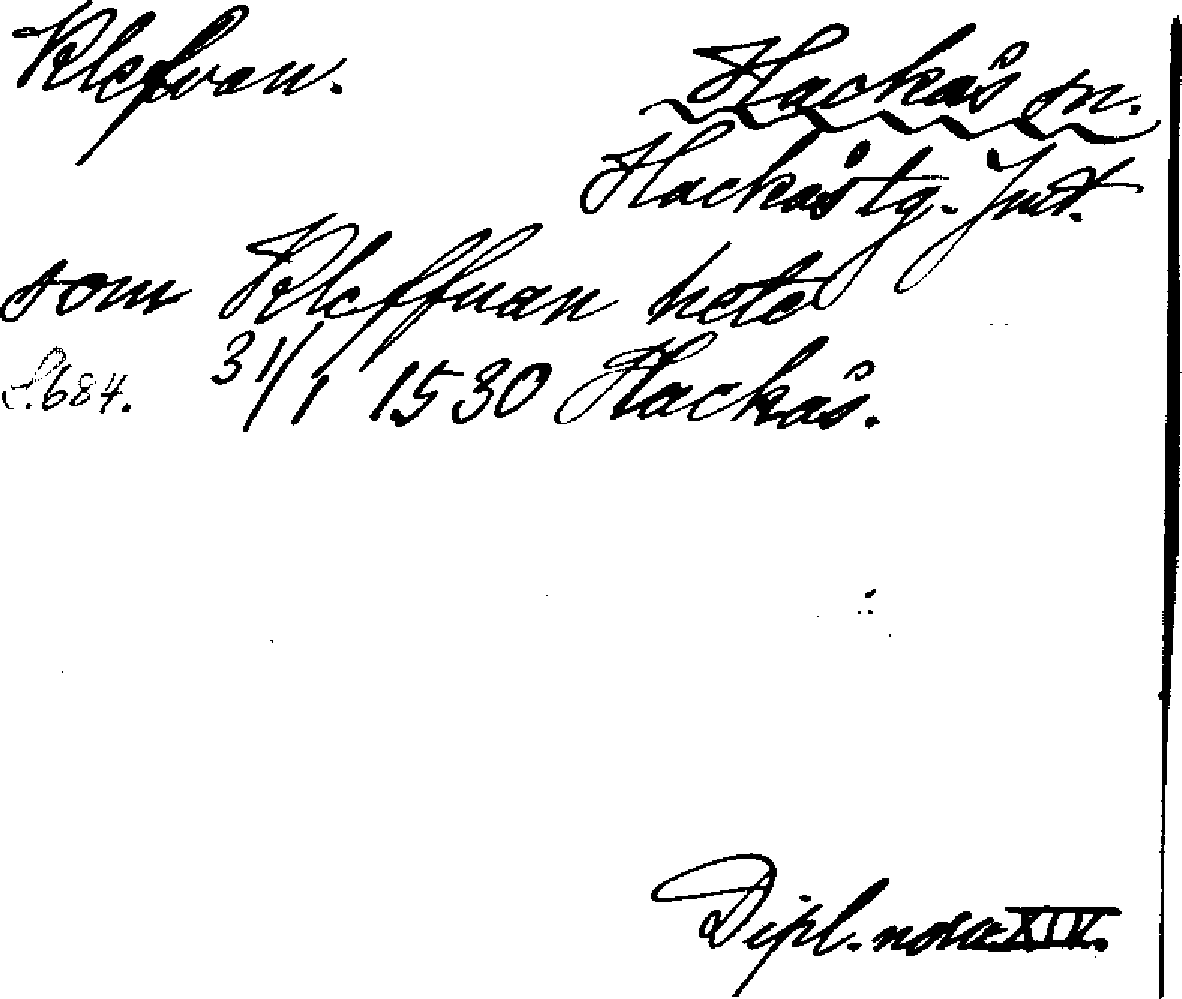 Klefvan.
Hackås sn.
Hackås tg. Jmt.
som Kleffuan hete
S. 684. 31/1 1530 Hackås.
Dipl. nova XIV.